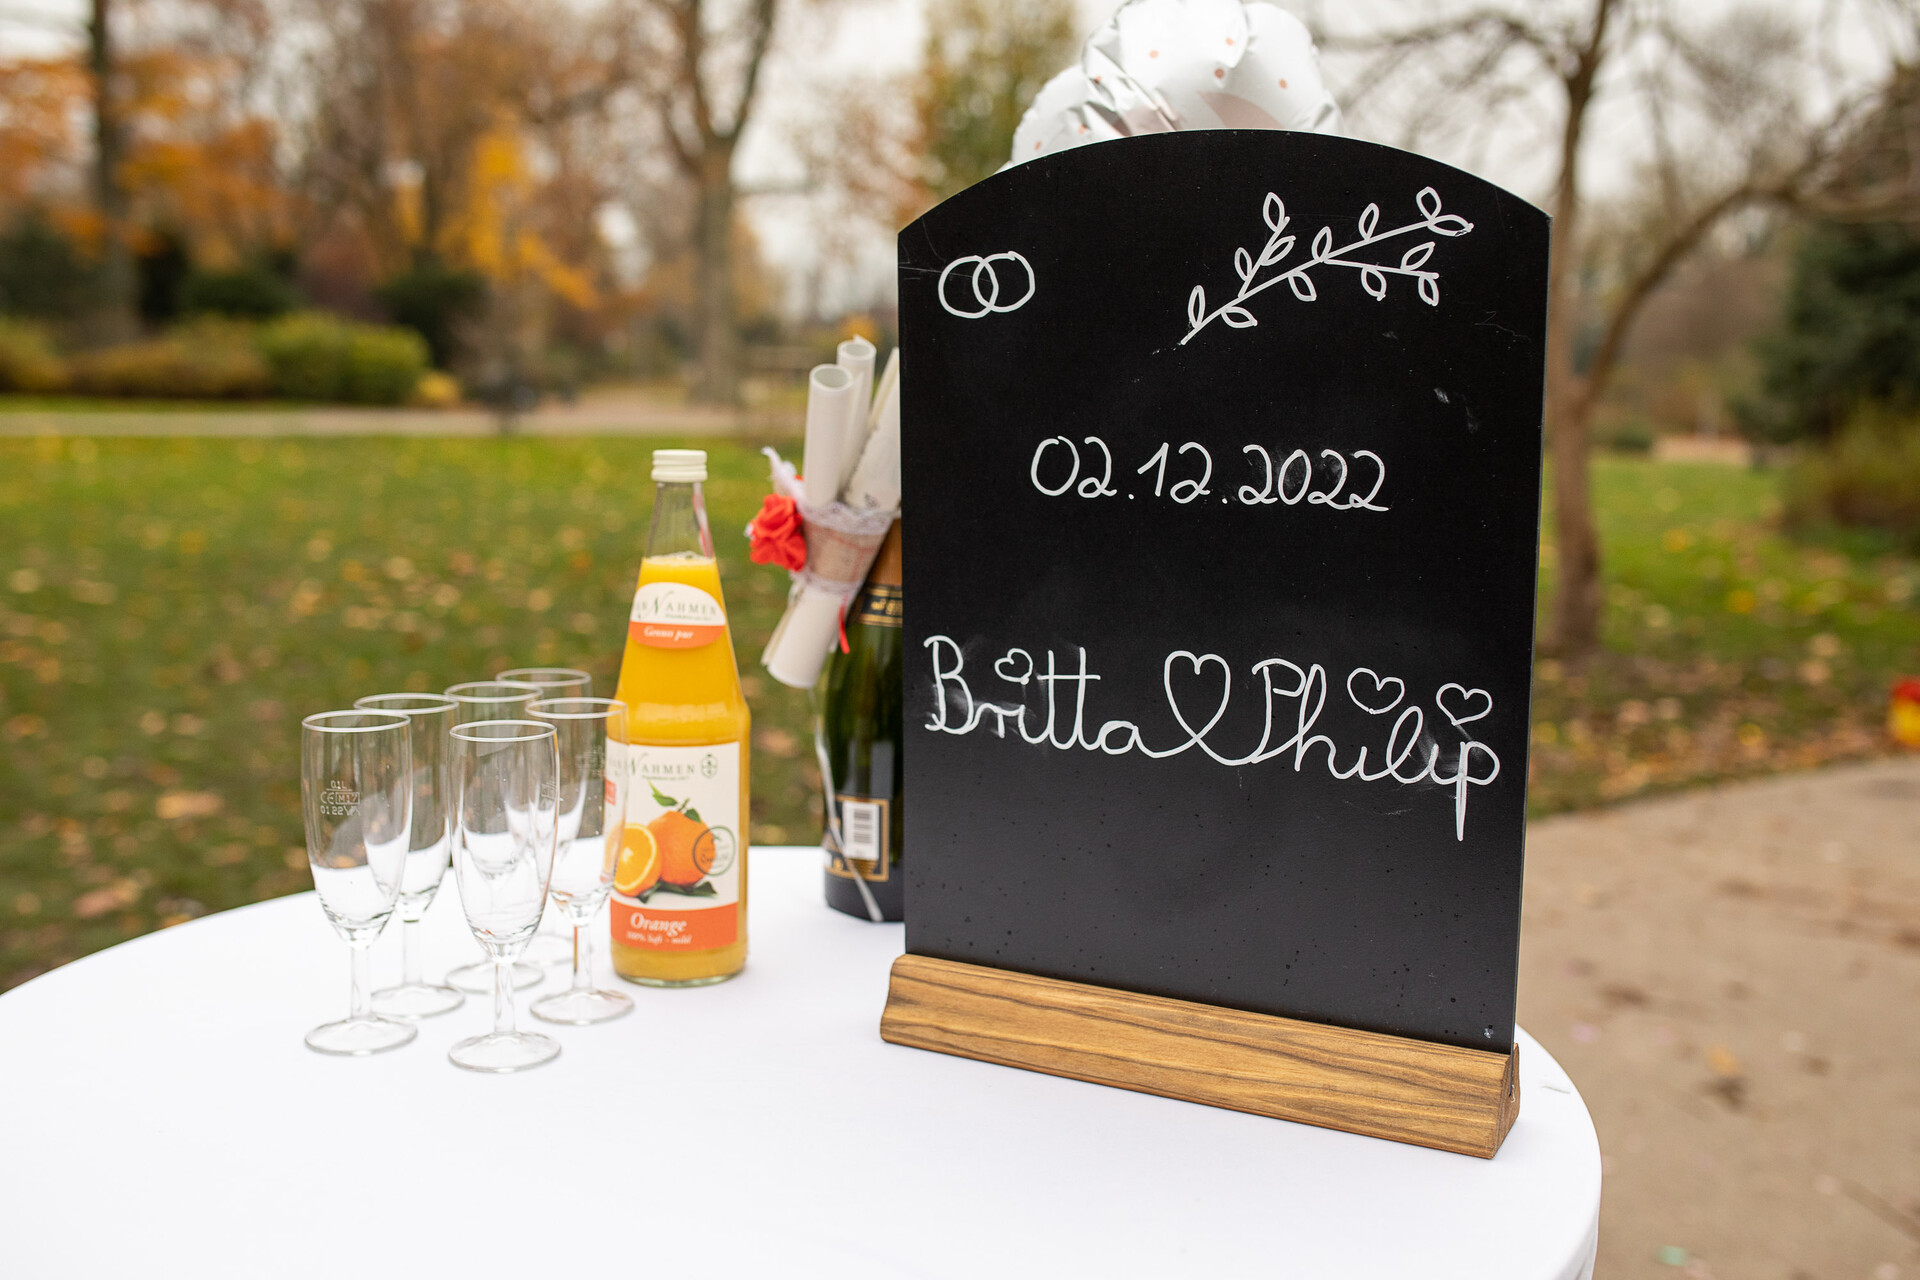 02.12.2022
Britta Philip
NAHMEN
Genuss pur
NAHMEN
Orange
100% Saft - mild
0,1L
CE M17
0122